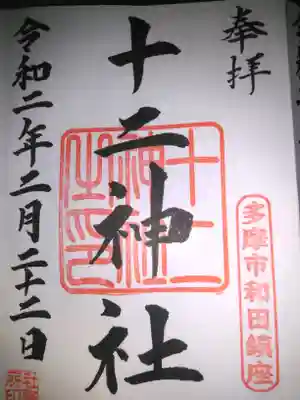 奉拝
十二神社
十二神社之印
多摩市和田鎮座
令和二年二月二十二日